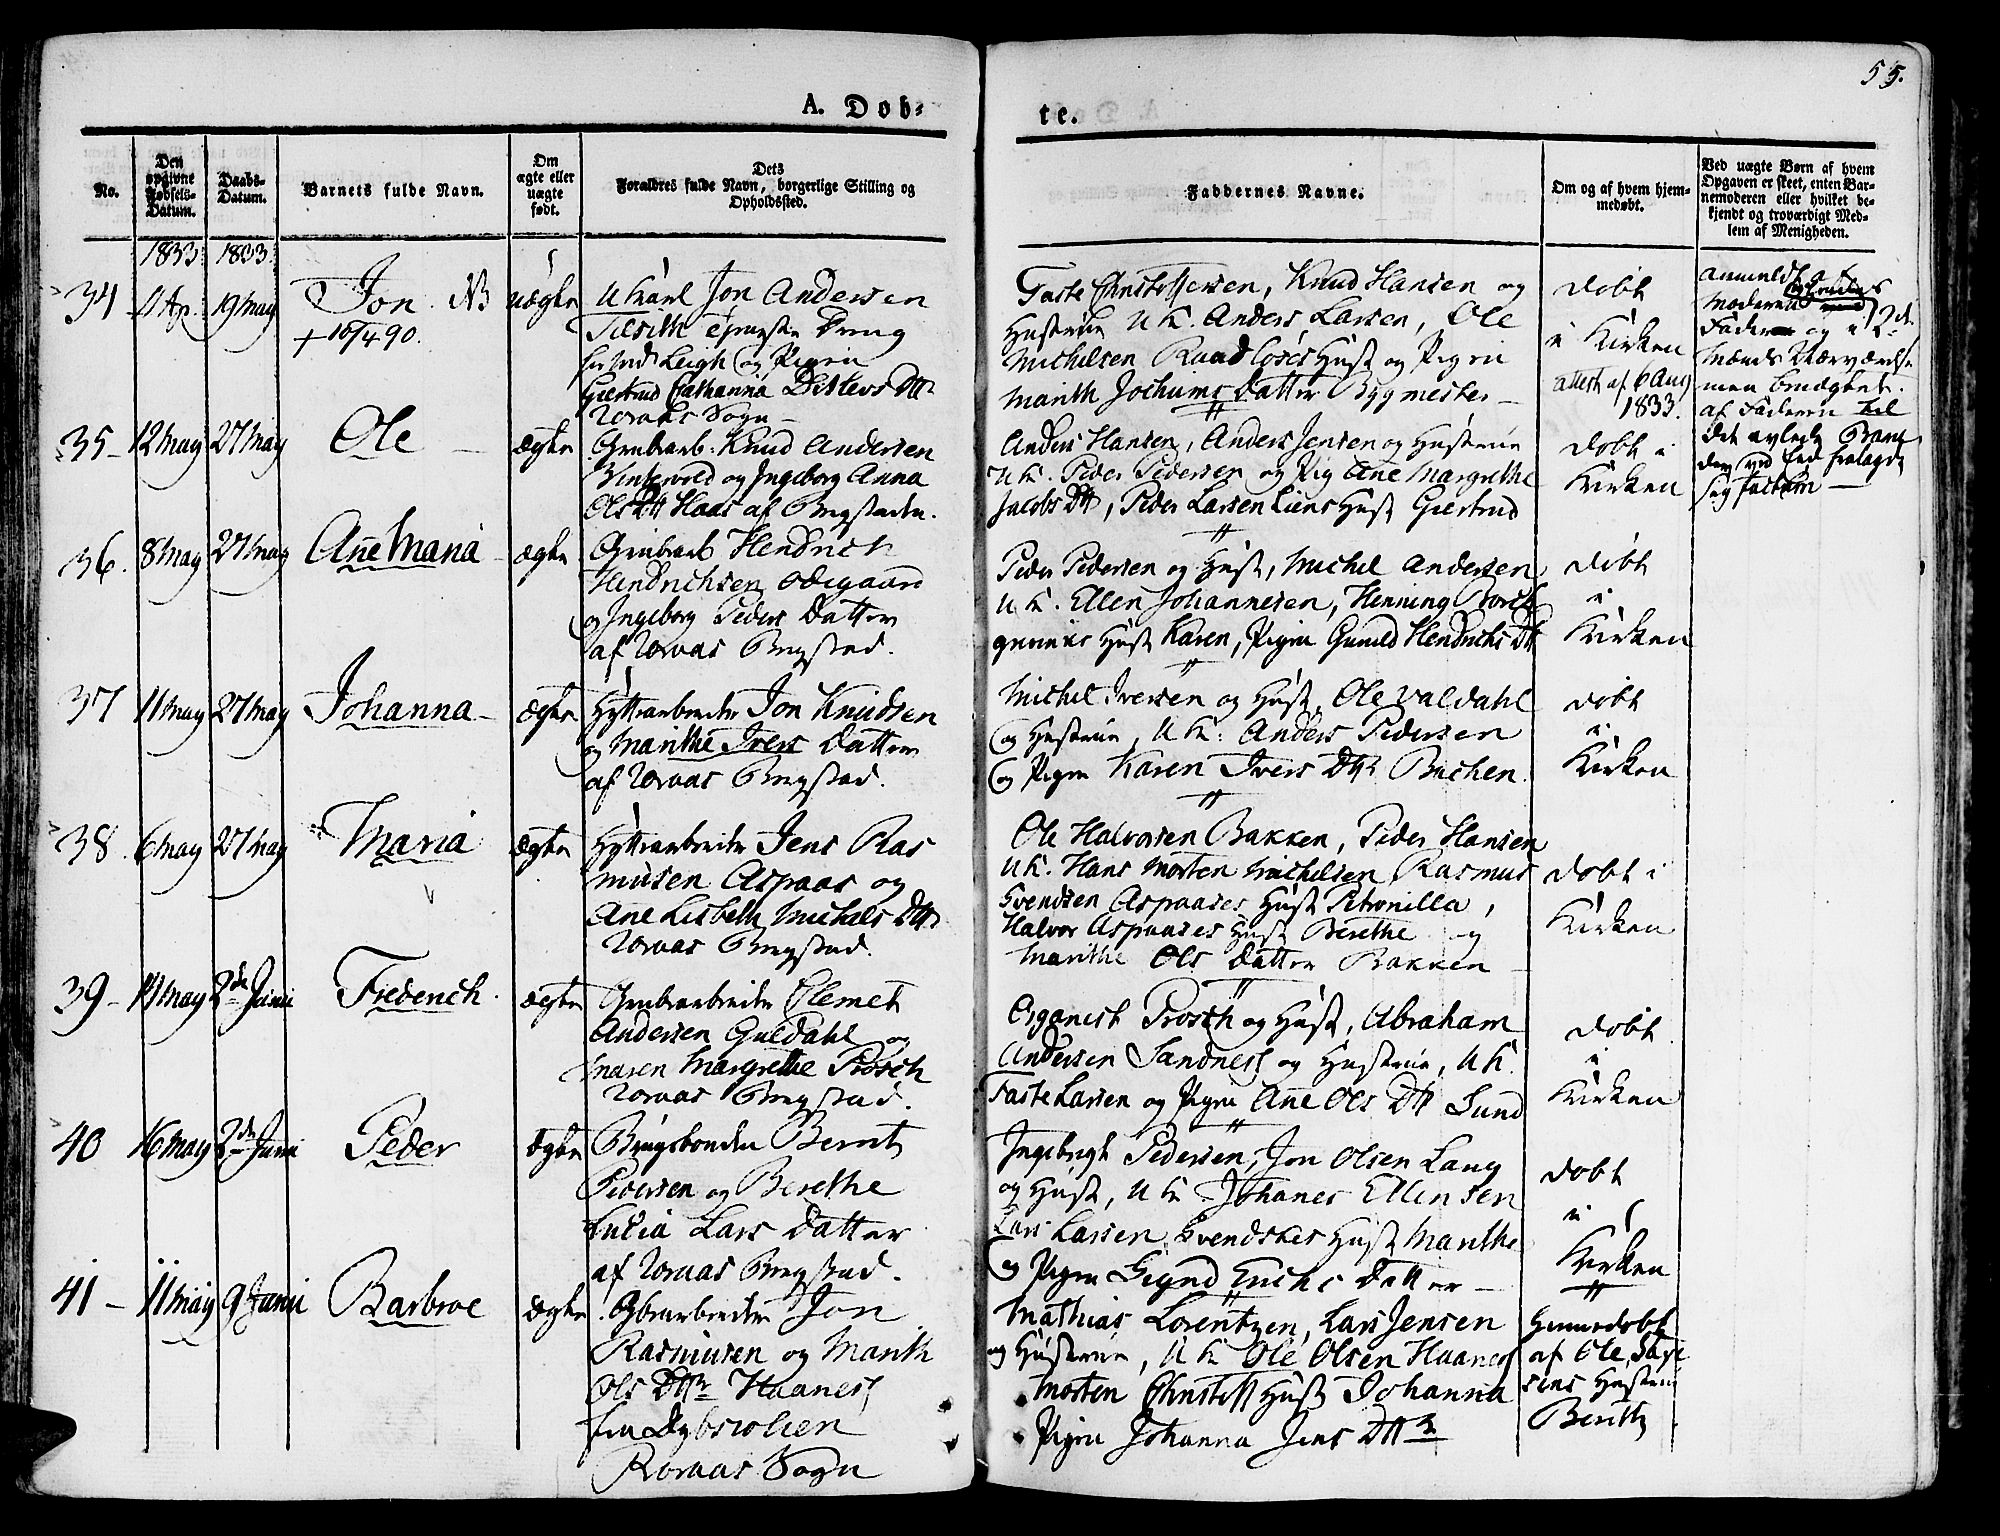 55.
A. Døb-
te.
No.
Den opgivne Fødsels-Datum.
Daabs-Datum.
Barnets fulde Navn.
Om ægte eller uægte født.
Dets Forældres fulde Navn, borgerlige Stilling og Opholdssted.
Faddernes Navne.
Om og af hvem hjemmedøbt.
Ved uægte Børn af hvem Opgaven er skeet, enten Barnemoderen eller hvilket bekjendt og troværdigt Medlem af Menigheden.
1833 1833
34 11 Ap. 19 May Jon NB uægte
+ 10/4 90.
UKarl Jon Andersen
Tilsith
og Pigen
Giertrud Cathanna Ditlevs Dtr
Røraas Sogn
Faste Christoffersen, Knud Hansen og
Hustrue UK. Anders Larsen, Ole
Michelsen Hust og Pigen
Marith Jochums Datter Bygmester
døbt
i Kirken
attest af 6 Aug
1833.
anmeldt af
Moderen
Faderen og 2de
men
af Faderen til
det avlede Barn
35 12 May 27 May Ole ægte
Grubearb. Knud Andersen
Vintervold og Ingeborg Anna
Ols Dtr Haas af Bergstaden.
Anders Hansen, Anders Jensen og Hustrue
UK. Peder Pedersen og Pig Ane Margrethe
Jacobs Dtr, Peder Larsen Liens Hust Giertrud
døbt i
Kirken
36. 8 May 27 May Ane Maria ægte
Grubearb Hendrich
Hendrichsen Ødegaard
og Ingeborg Peders Datter
af Røraas Bergstad.
Peder Pedersen og Hust, Michel Andersen
UK. Ellen Johannesen, Henning
Hust Karen, Pigen Gunild Hendrichs Dtr
døbt
i
Kirken
37 11 May 27 May Johanna ægte
Hyttearbeider Jon Knudsen
og Marithe Ivers Datter
af Røraas Bergstad.
Michel Iversen og Hust, Ole Valdahl
og Hustrue, UK. Anders Pedersen
og Pigen Karen Ivers Dtr Buchen.
døbt
i
Kirken
38. 6 May 27 May Maria ægte
Hyttearbeider Jens Ras
musen Aspaas og
Ane Lisbeth Michels Dtr
Røraas Bergstad.
Ole Halvorsen Bakken, Peder Hansen
UK. Hans Morten Michelsen Rasmus
Svendsen Aspaases Hust Petronilla,
Halvor Aspaases Hust Berethe og
Marithe Ols Datter Bakken
døbt i
Kirken
39 - 14 May 2de Junii Frederich ægte
Grubearbeider Clemet
Andersen Guldahl og
Maren Margrethe Prosch
Røraas Bergstad.
Organist Prosch og Hust, Abraham
Andersen Sandness og Hustrue, UK.
Faste Larsen og Pigen Ane Ols Dtr Sund
døbt
i
Kirken
40 16 May 2de Junii Peder ægte
Brugsbonden Bernt
Pedersen og Berethe
Lucia Lars Datter
af Røraas Bergstad.
Ingebrigt Pedersen, Jon Olsen Lang
og Hust, UK Johanes Ellensen
Lars Larsen Svendskes Hust Marithe
og Pigen Sigrid Erichs Datter
døbt
i
Kirken
41 - 11 May 9 Junii Barbroe ægte
Jon
Rasmusen og Marith
Ols Dtr Haaness
fra Dybsiølien
Røraas Sogn
Mathias Lorentzen, Lars Jensen
og Hustrue, UK Ole Olsen Haaness
Morten Christoff Hust Johanna
Pigen Johanna Jens Dtr
Hiemedøbt
af Ole
Hustrue
Berith